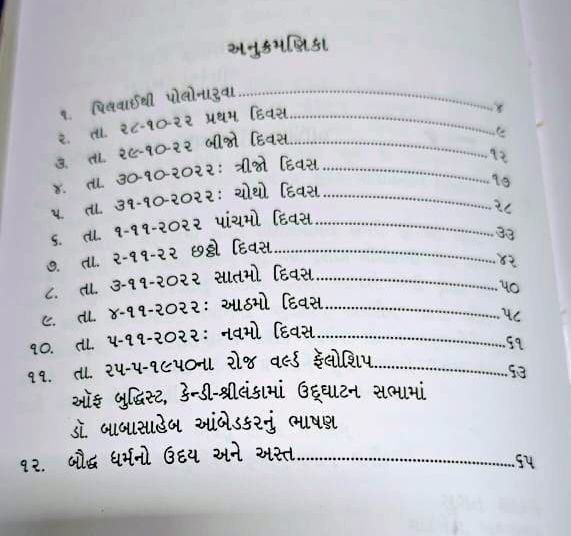 અનુક્રમણિકા
૧. પિલવાઈથી પોલોનારુવા ૪
૨. તા. ૨૮-૧૦-૨૨ પ્રથમ દિવસ ૯
૩. તા. ૨૯-૧૦-૨૨ બીજો દિવસ ૧૨
૪. તા. ૩૦-૧૦-૨૦૨૨: ત્રીજો દિવસ ૧૭
૫. તા. ૩૧-૧૦-૨૦૨૨: ચોથો દિવસ ૨૮
૬. તા. ૧-૧૧-૨૦૨૨ પાંચમો દિવસ ૩૩
૭. તા. ૨-૧૧-૨૨ છઠ્ઠો દિવસ ૪૨
૮. તા. ૩-૧૧-૨૦૨૨ સાતમો દિવસ ૫૦
૯. તા. ૪-૧૧-૨૦૨૨: આઠમો દિવસ ૫૮
૧૦. તા. ૫-૧૧-૨૦૨૨: નવમો દિવસ ૬૧
૧૧. તા. ૨૫-૫-૧૯૫૦ના રોજ વર્લ્ડ ફેલોશિપ ૬૩
ઑફ બુદ્ધિસ્ટ, કેન્ડી-શ્રીલંકામાં ઉદ્ઘાટન સભામાં
ડૉ. બાબાસાહેબ આંબેડકરનું ભાષણ
૧૨. બૌદ્ધ ધર્મનો ઉદય અને અસ્ત ૬૫